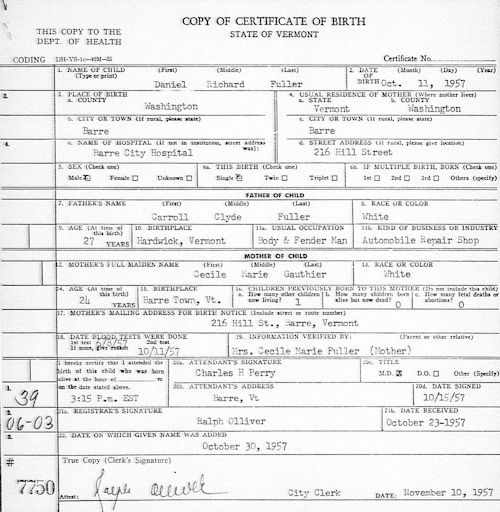 COPY OF CERTIFICATE OF BIRTH
THIS COPY TO THE
DEPT. OF HEALTH
STATE OF VERMONT
CODING DH-VS-1c-40M-55 Certificate No.
1. NAME OF CHILD (Type or print) (First) (Middle) (Last) 2. DATE OF BIRTH (Month) (Day) (Year)
Daniel Richard Fuller Oct. 11, 1957
2. 3. PLACE OF BIRTH 4. USUAL RESIDENCE OF MOTHER (Where mother lives)
a. COUNTY a. STATE b. COUNTY
Washington Vermont Washington
b. CITY OR TOWN (If rural, please state) c. CITY OR TOWN (If rural, please state)
Barre Barre
4. c. NAME OF HOSPITAL (If not in institution, street address was): d. STREET ADDRESS (If rural, please give location)
Barre City Hospital 216 Hill Street
5. SEX (Check one) 6a. THIS BIRTH (Check one) 6b. IF MULTIPLE BIRTH, BORN (Check one)
Male Female Unknown Single Twin Triplet 1st 2nd 3rd Others (specify)
FATHER OF CHILD
7. FATHER'S NAME (First) (Middle) (Last) 8. RACE OR COLOR
Carroll Clyde Fuller White
9. AGE (At time of this birth) 10. BIRTHPLACE 11a. USUAL OCCUPATION 11b. KIND OF BUSINESS OR INDUSTRY
27 YEARS Hardwick, Vermont Body & Fender Man Automobile Repair Shop
MOTHER OF CHILD
12. MOTHER'S FULL MAIDEN NAME (First) (Middle) (Last) 13. RACE OR COLOR
Cecile Marie Gauthier White
14. AGE (At time of this birth) 15. BIRTHPLACE 16. CHILDREN PREVIOUSLY BORN TO THIS MOTHER (Do not include this child)
a. How many other children now living? 1 b. How many children born alive but now dead? 0 c. How many fetal deaths or abortions? 0
24 YEARS Barre Town, Vt.
17. MOTHER'S MAILING ADDRESS FOR BIRTH NOTICE (Include street or route number)
216 Hill St., Barre, Vermont
18. DATE BLOOD TESTS WERE DONE 19. INFORMATION VERIFIED BY: (Parent or other relative)
1st test 2nd test
If none, give reason 10/11/57 Mrs. Cecile Marie Fuller (Mother)
I hereby certify that I attended the birth of this child who was born alive at the hour of on the date stated above. 20a. ATTENDANT'S SIGNATURE 20c. TITLE
Charles H Perry M.D. D.O. Other (Specify)
20b. ATTENDANT'S ADDRESS 20d. DATE SIGNED
3:15 P.m. EST Barre, Vt 10/15/57
1. 39
21a. REGISTRAR'S SIGNATURE 21b. DATE RECEIVED
06-03 Ralph Olliver October 23-1957
3. 22. DATE ON WHICH GIVEN NAME WAS ADDED
October 30, 1957
# True Copy (Clerk's Signature)
7750
Attest: Ralph Olliver City Clerk DATE: November 10, 1957